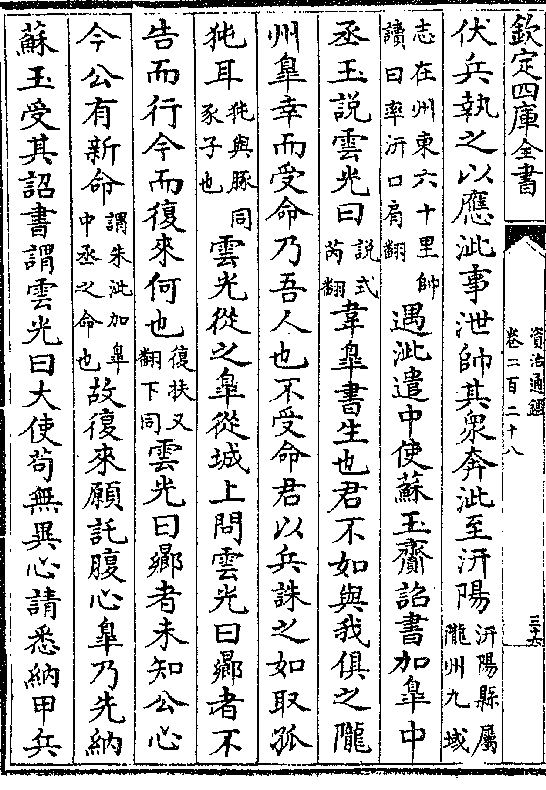 欽定四庫全書
資治通鑑
卷二百二十八
三十六
伏兵執之以應泚事泄帥其衆奔泚至汧陽汧陽縣屬隴州九域
志在州東六十里帥讀曰率汧口肩翻遇泚遣中使蘇玉齎詔書加臯中
丞玉說雲光曰說式芮翻韋臯書生也君不如與我俱之隴
州臯幸而受命乃吾人也不受命君以兵誅之如取孤
㹠耳㹠與豚同豕子也雲光從之臯從城上問雲光曰鄉者不
告而行今而復來何也復扶又翻下同雲光曰鄉者未知公心
今公有新命謂朱泚加臯中丞之命也故復來願託腹心臯乃先納
蘇玉受其詔書謂雲光曰大使苟無異心請悉納甲兵